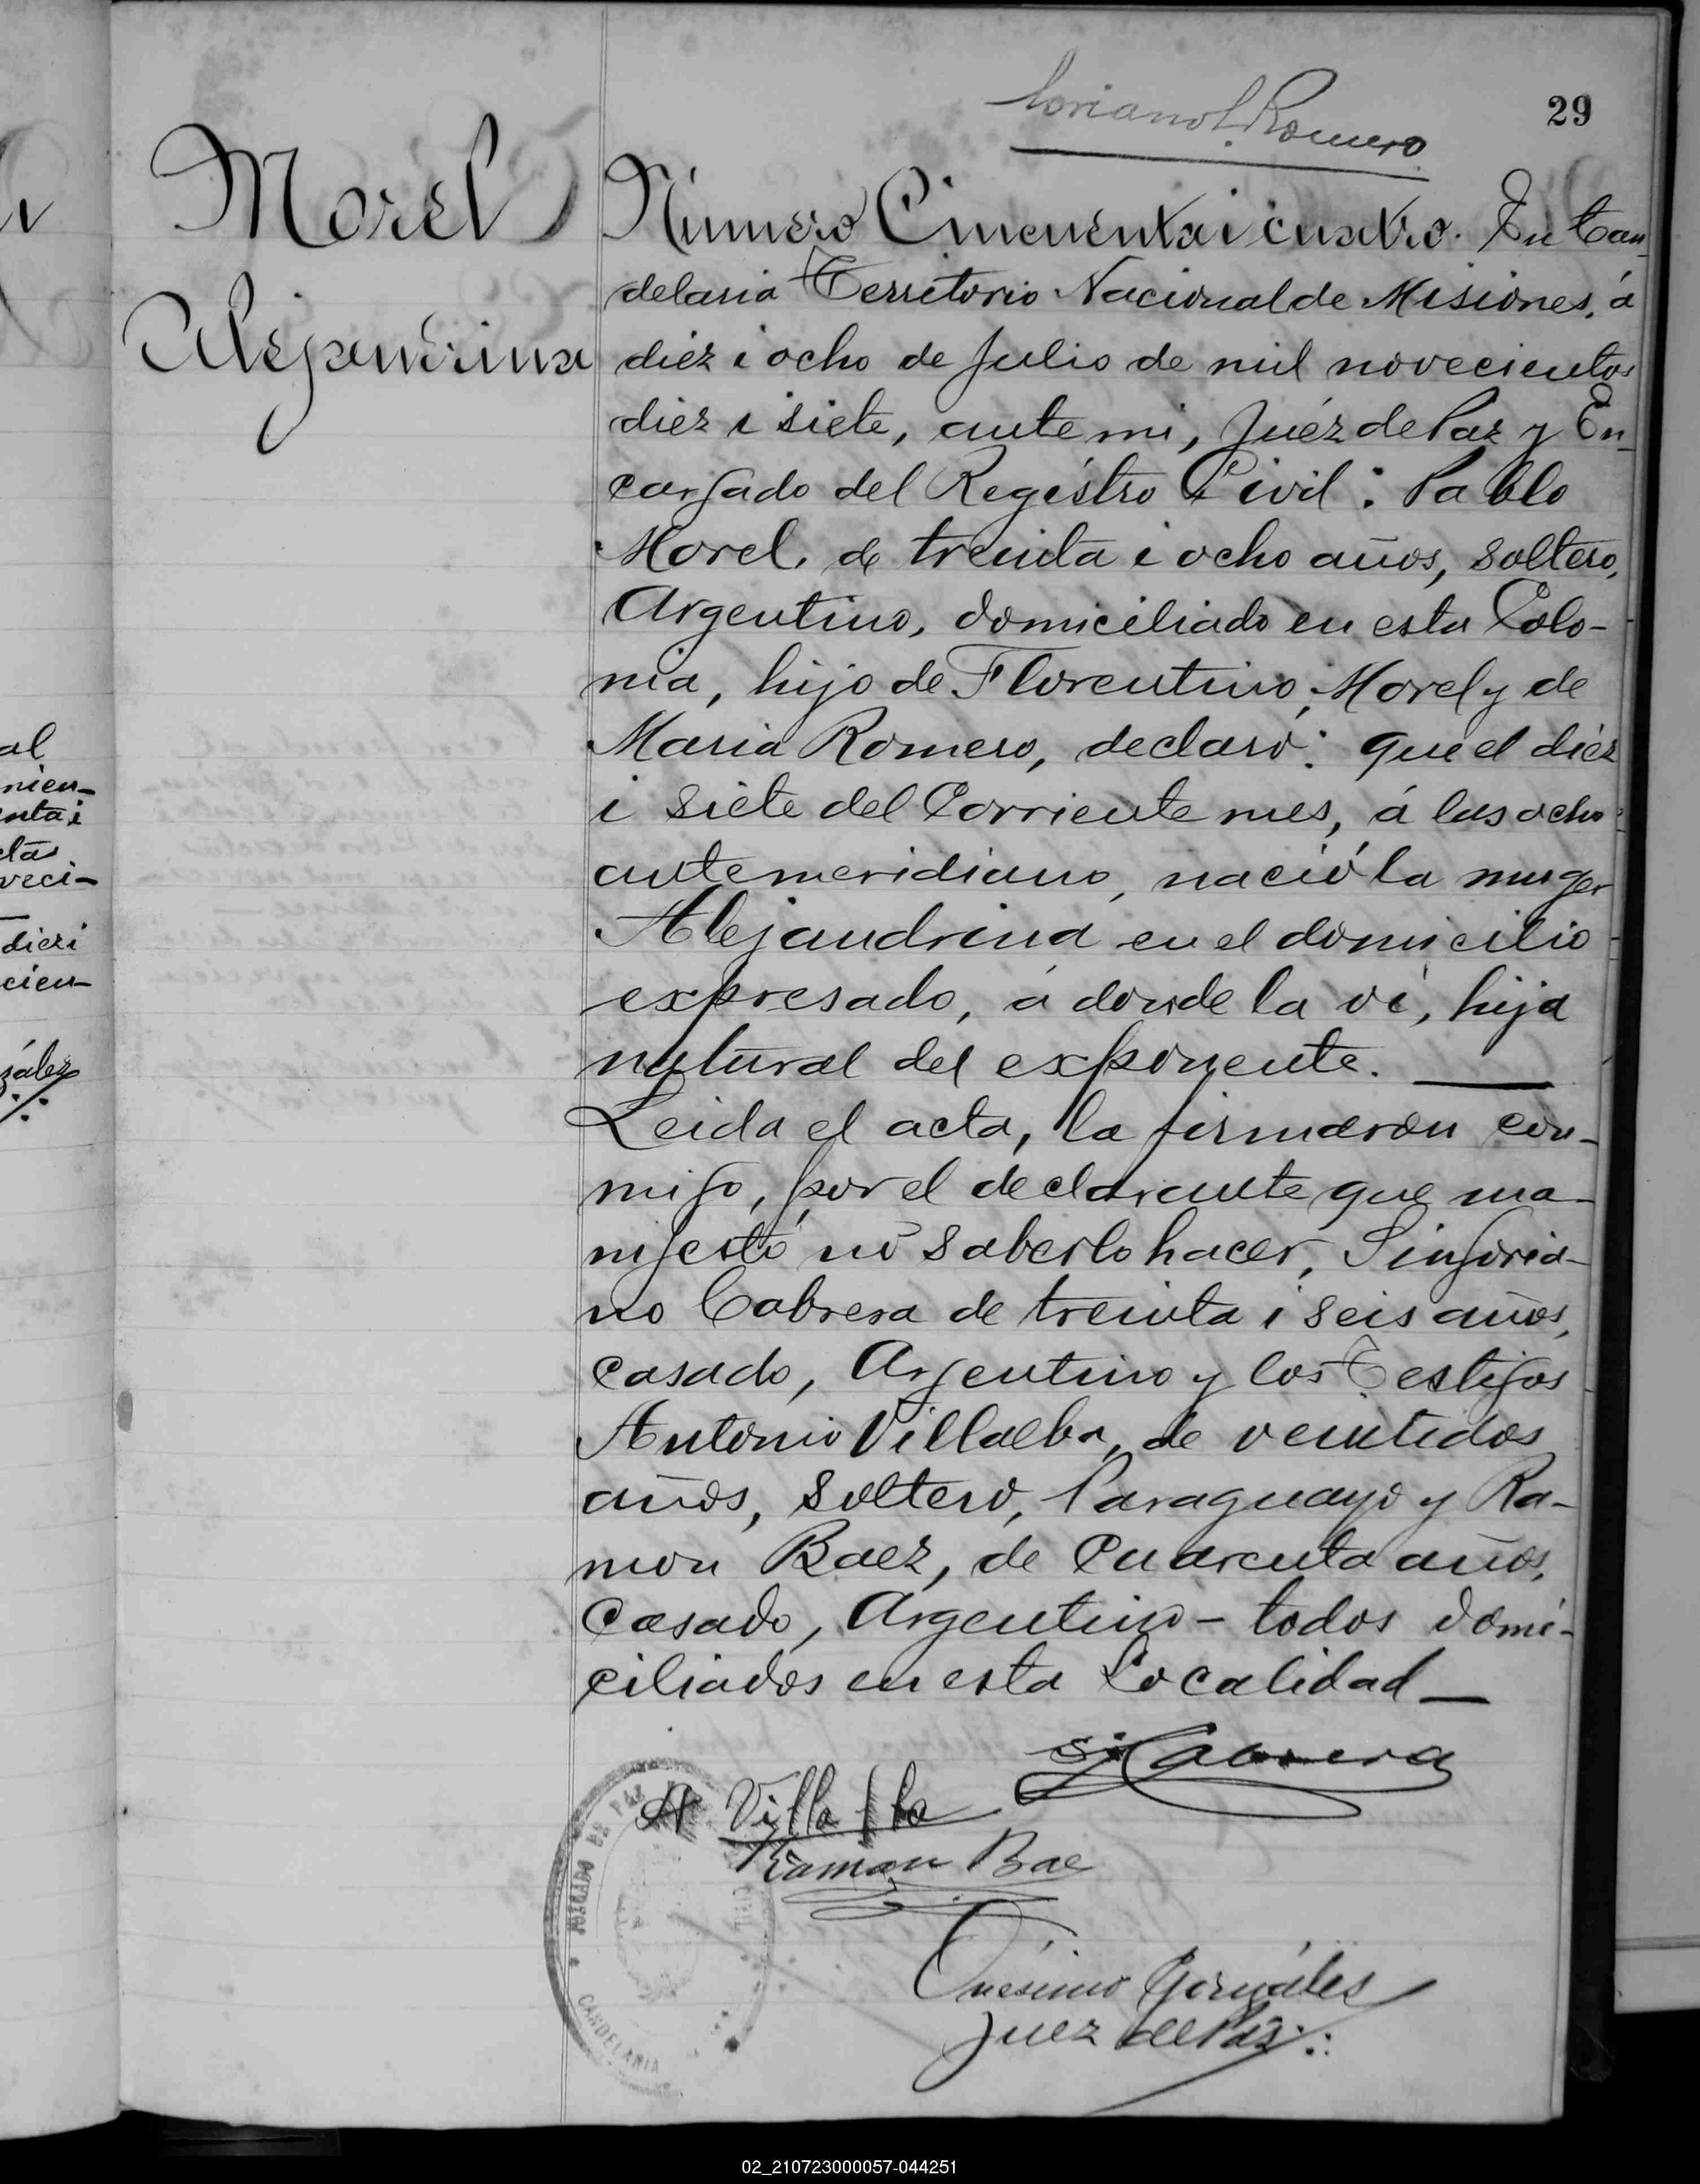 29
Romero
Morel
Alejandrina
Número Cincuenta i cuatro. En Can-
delaria Territorio Nacional de Misiones, á
diez i ocho de Julio de mil novecientos
diez i siete, ante mi, Juéz de Paz y En-
cargado del Registro Civil: Pablo
Morel, de treinta i ocho años, soltero,
Argentino, domiciliado en esta Colo-
nia, hijo de Florentino, Morel y de
Maria Romero, declaró: que el diéz
i siete del Corriente mes, á las ocho
antemeridiano, nació la muger
Alejandrina en el domicilio
expresado, á donde la ví, hija
natural del exponente. —
Leida el acta, la firmaron con-
migo, por el declarante que ma-
nifestó no saberlo hacer, Sinforia-
no Cabrera de treinta i seis años,
casado, Argentino y los Testigos
Antonio Villalba, de veintidos
años, soltero, Paraguayo y Ra-
mon Baez, de Cuarenta años,
Casado, Argentino - todos domi-
ciliados en esta Localidad —
S. Cabrera
A Villalba
Ramon Bae
Onésimo González
Juez de Paz
JUZGADO DE PAZ
CIVIL
CANDELARIA
al
mien-
enta i
veci-
diezi
cien-
zález
02_210723000057-044251